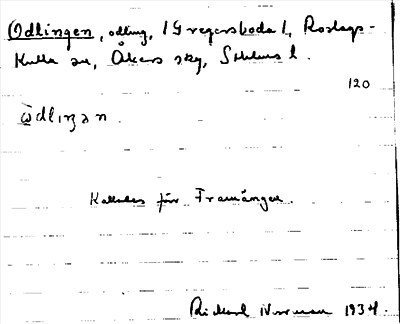 Odlingen, odling, 1 Gregersboda 1, Roslags-
Kulla sn, Åkers skg, Sthlms l.
120
ωdlıŋən.
Kallades förr Framängen.
Rickard Norrman 1934.